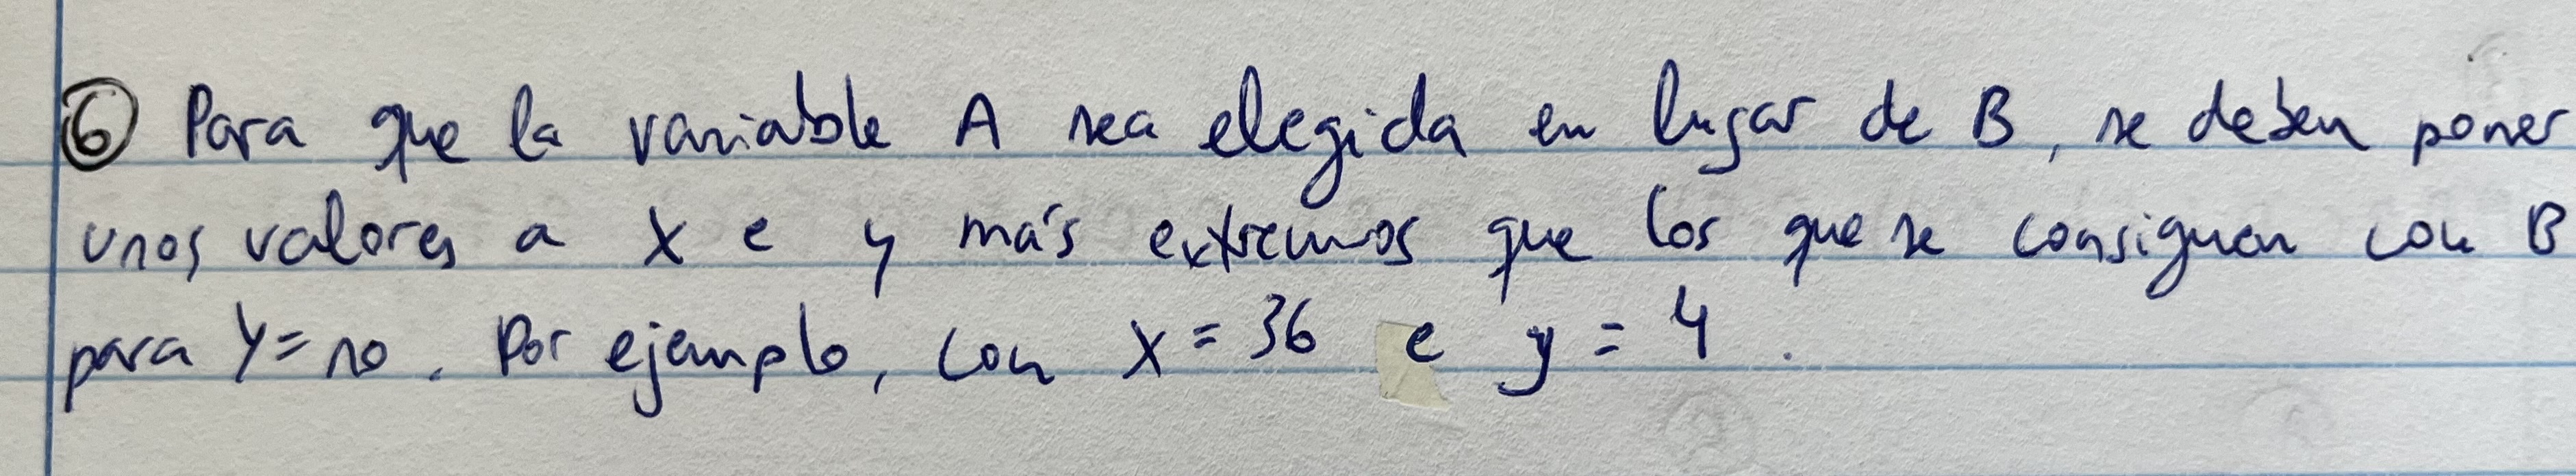 ⑥ Para que la variable A sea elegida en lugar de B, se deben poner
unos valores a X e y más extremos que los que se consiguen con B
para Y=no. Por ejemplo, con X=36 e y=4.